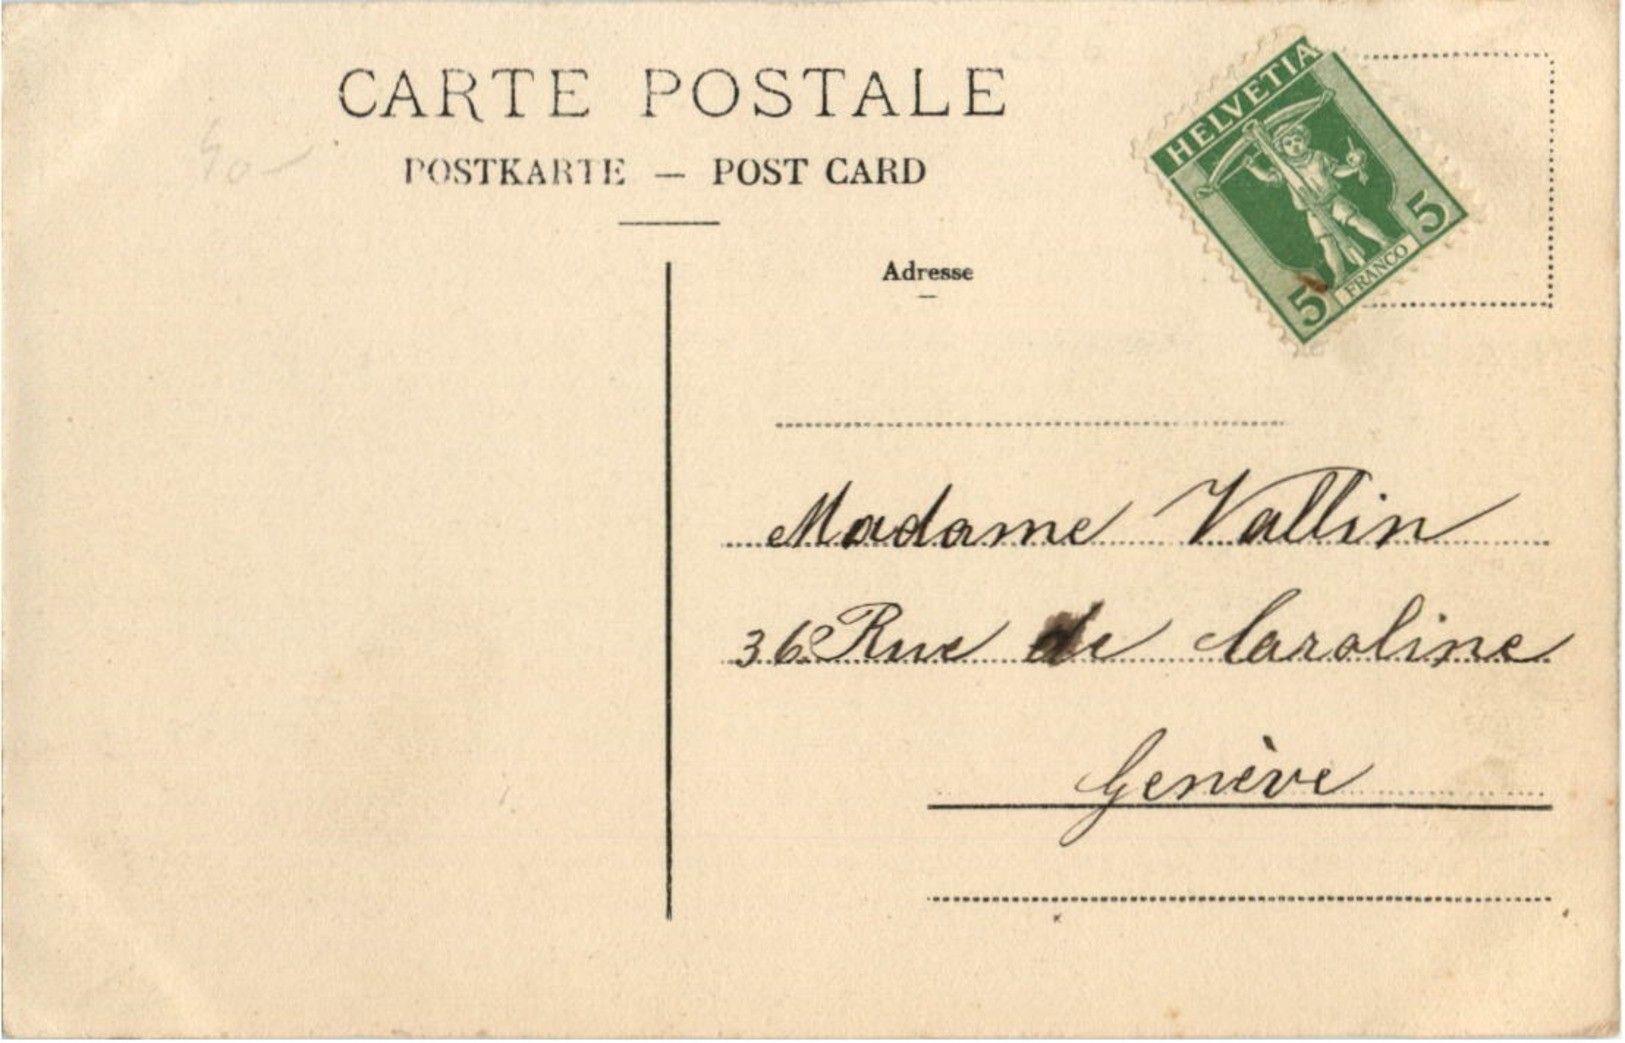 CARTE POSTALE
POSTKARTE — POST CARD
Adresse
HELVETIA
5 FRANCO 5
40-
Madame Vallin
36 Rue de Caroline
Genève